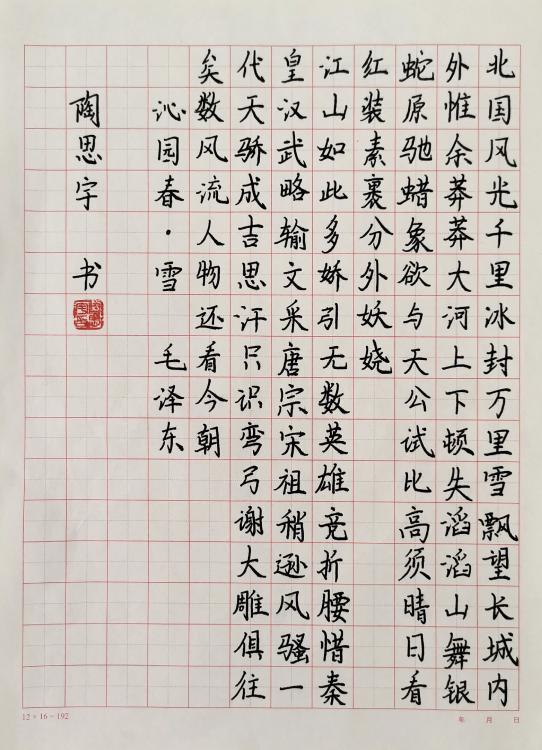 北国风光千里冰封万里雪飘望长城内
外惟余莽莽大河上下顿失滔滔山舞银
蛇原驰蜡象欲与天公试比高须晴日看
红装素裹分外妖娆
江山如此多娇引无数英雄竞折腰惜秦
皇汉武略输文采唐宗宋祖稍逊风骚一
代天骄成吉思汗只识弯弓谢大雕俱往
矣数风流人物还看今朝
沁园春·雪 毛泽东
陶思宇 书
12×16=192
年 月 日